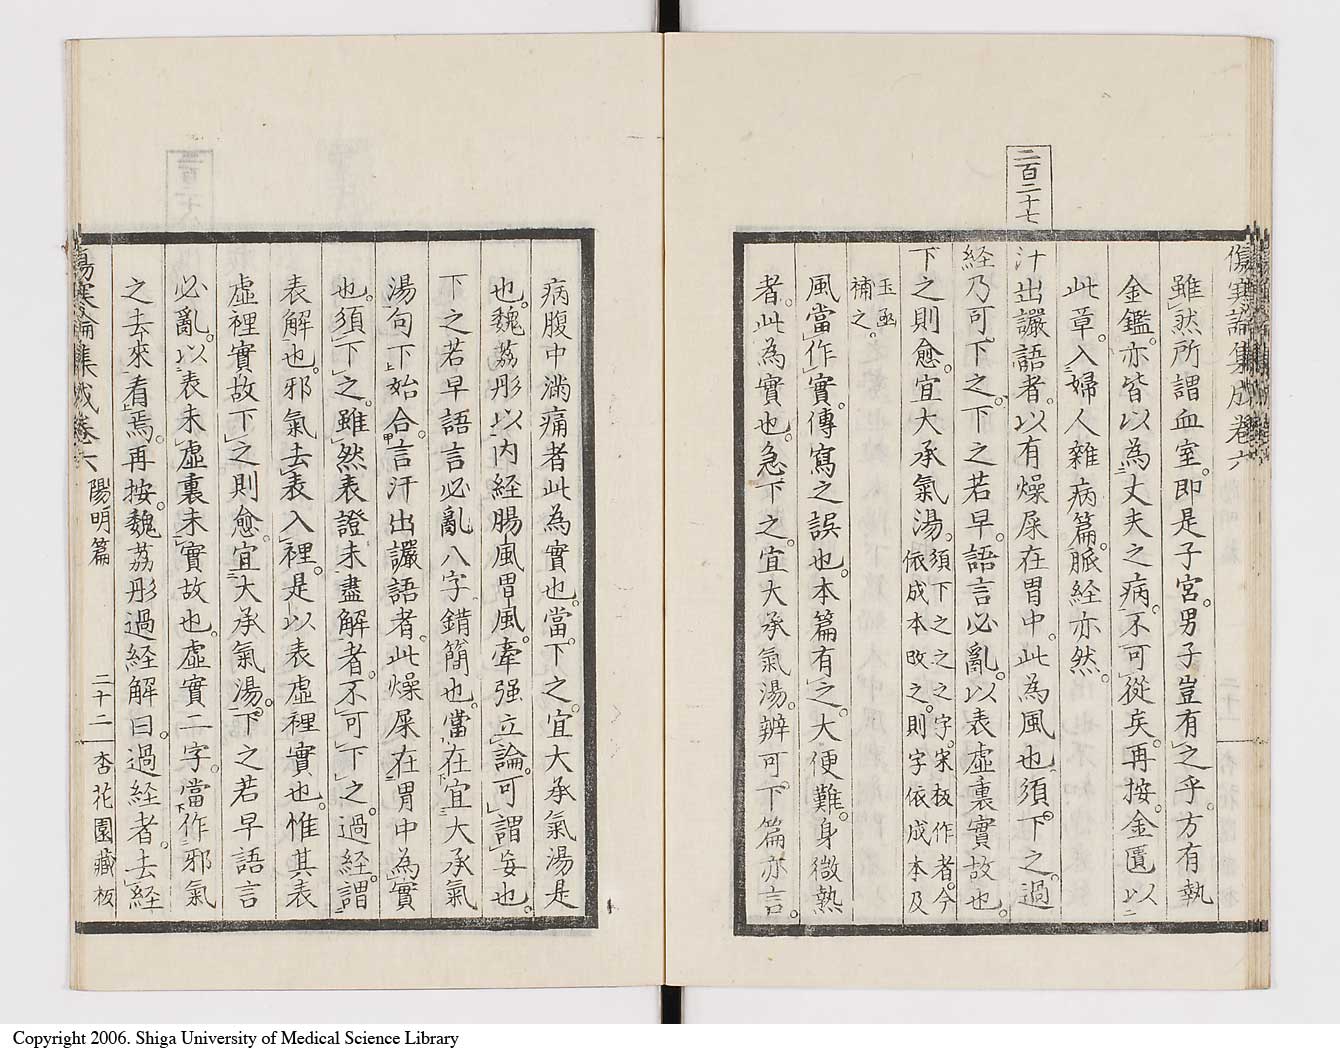 二百二十七
傷寒論集成卷六
雖然所謂血室。即是子宮。男子豈有之乎。方有執
金鑑。亦皆以為丈夫之病。不可從矣。再按。金匱以
此章。入婦人雜病篇。脈経亦然。
汁出讝語者。以有燥屎在胃中。此為風也須下之。過
経乃可下之。下之若早。語言必亂。以表虛裏實故也。
下之則愈。宜大承氣湯。須下之之字。宋板作者。今
依成本改之。則字依成本及
玉函
補之。
風當作實。傳寫之誤也。本篇有之。大便難。身微熱
者。此為實也。急下之。宜大承氣湯。辨可下篇亦言。
病腹中滿痛者此為實也。當下之。宜大承氣湯是
也。魏茘彤以内経腸風胃風。牽强立論。可謂妄也。
下之若早語言必亂八字錯簡也。當在宜大承氣
湯句下始合。言汗出讝語者。此燥屎在胃中為實
也。須下之。雖然表證未盡解者。不可下之。過経。謂
表解也。邪氣去表入裡。是以表虛裡實也。惟其表
虛裡實。故下之則愈。宜大承氣湯。下之若早語言
必亂。以表未虛裏未實故也。虛實二字。當作邪氣
之去來看焉。再按。魏茘彤過経解曰。過経者。去経
傷寒論集成卷六 陽明篇 二十二 杏花園藏板
Copyright 2006. Shiga University of Medical Science Library